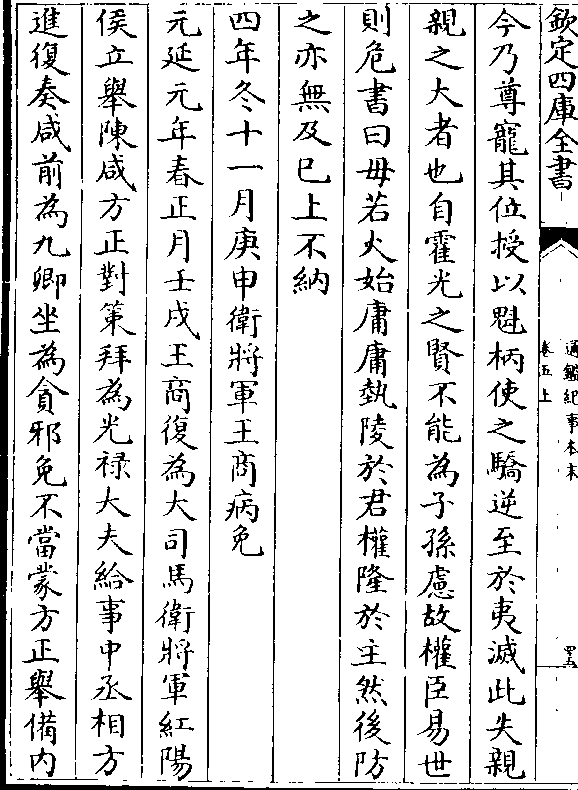 欽定四庫全書
通鑑紀事本末
卷五上
四五
今乃尊寵其位授以魁柄使之驕逆至於夷滅此失親
親之大者也自霍光之賢不能為子孫慮故權臣易世
則危書曰毋若火始庸庸執陵於君權隆於主然後防
之亦無及已上不納
四年冬十一月庚申衛將軍王商病免
元延元年春正月壬戌王商復為大司馬衛將軍紅陽
侯立舉陳咸方正對策拜為光禄大夫給事中丞相方
進復奏咸前為九卿坐為貪邪免不當蒙方正舉備内